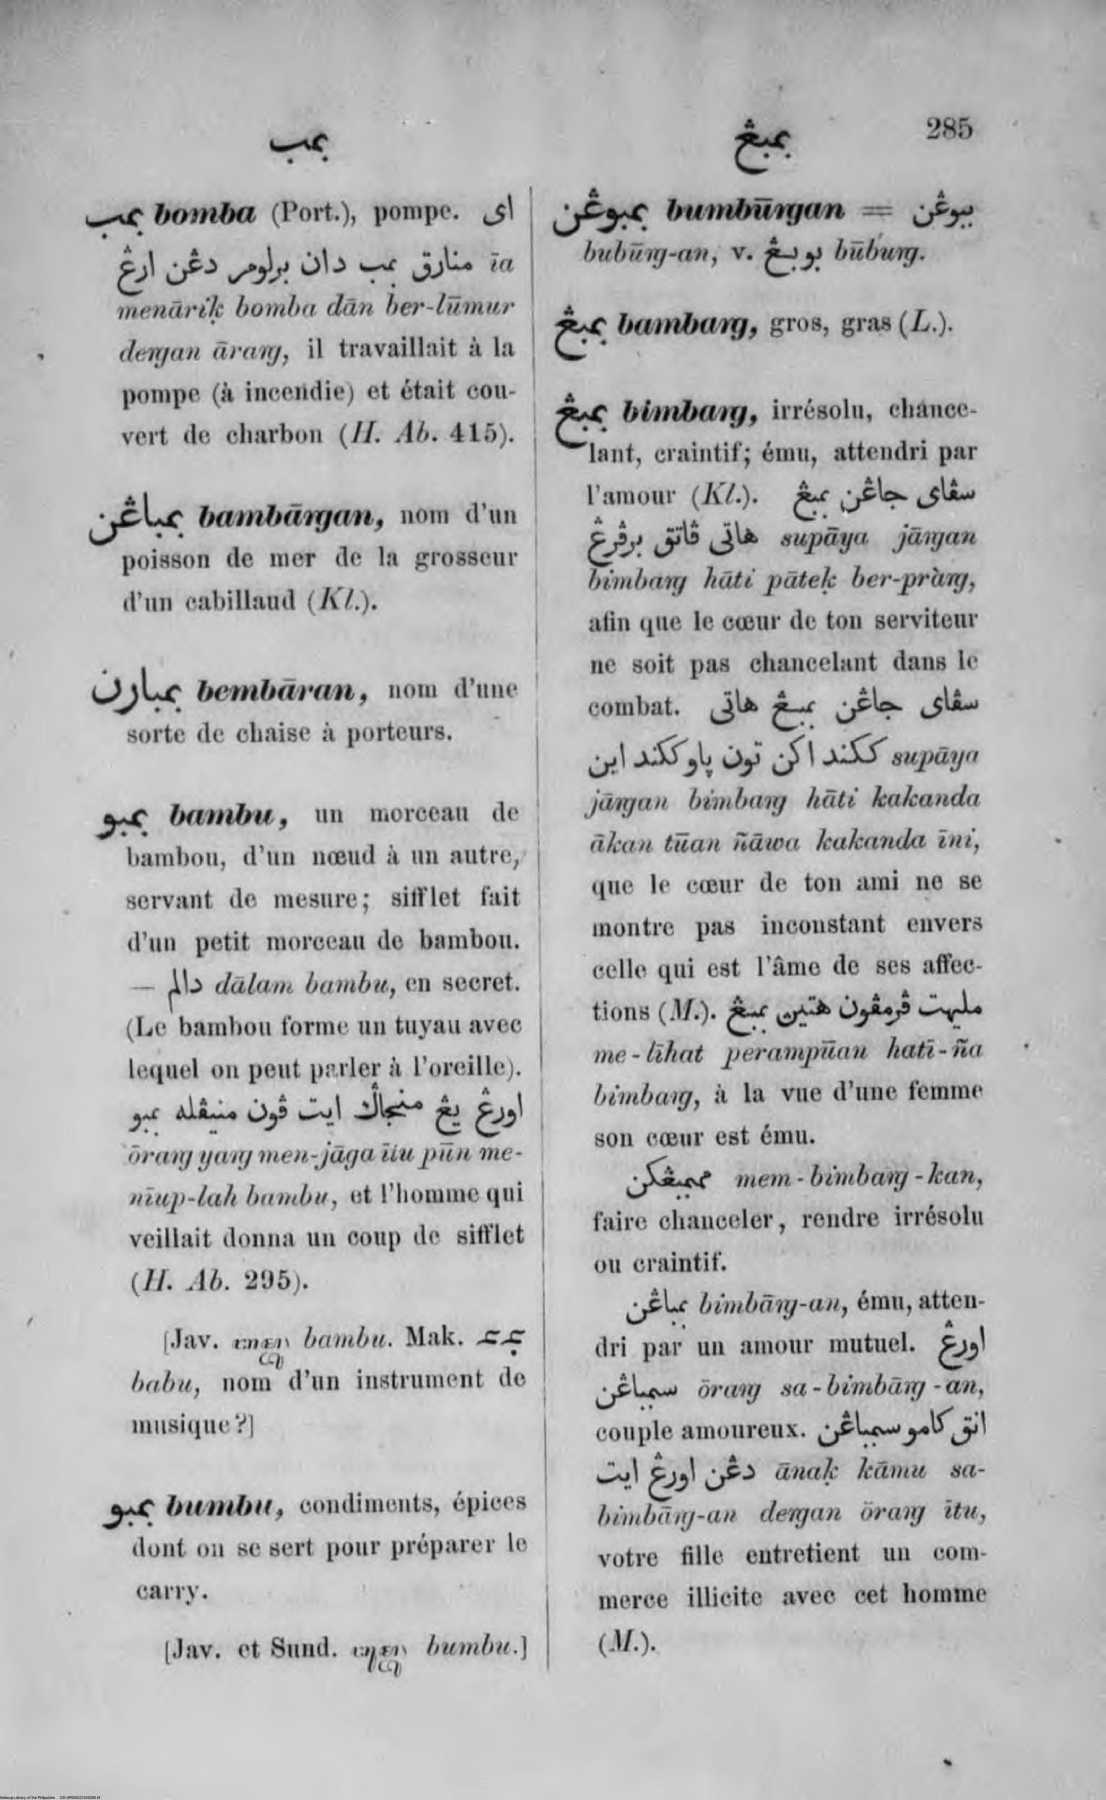 بمب
بمبڠ
285
بمب bomba (Port.), pompe. اى
منارق بمب دان برلومر دڠن ارڠ īa
menārik̩ bomba dān ber-lūmur
deŋan āraŋ, il travaillait à la
pompe (à incendie) et était cou-
vert de charbon (H. Ab. 415).
بمباڠن bambāŋan, nom d'un
poisson de mer de la grosseur
d'un cabillaud (Kl.).
بمبارن bembāran, nom d'une
sorte de chaise à porteurs.
بمبو bambu, un morceau de
bambou, d'un nœud à un autre,
servant de mesure; sifflet fait
d'un petit morceau de bambou.
— دالم dālam bambu, en secret.
(Le bambou forme un tuyau avec
lequel on peut parler à l'oreille).
اورڠ يڠ منجاݢ ايت ڤون منيڤله بمبو
ōraŋ yaŋ men-jāga ītu pūn me-
nīup-lah bambu, et l'homme qui
veillait donna un coup de sifflet
(H. Ab. 295).
[Jav. bambu. Mak.
babu, nom d'un instrument de
musique?]
بمبو bumbu, condiments, épices
dont on se sert pour préparer le
carry.
[Jav. et Sund. bumbu.]
بمبوڠن bumbūŋan = ببوڠن
bubūŋ-an, v. بوبڠ būbuŋ.
بمبڠ bambaŋ, gros, gras (L.).
بمبڠ bimbaŋ, irrésolu, chance-
lant, craintif; ému, attendri par
l'amour (Kl.). سڤاى جاڠن بمبڠ
هاتى ڤاتق برڤرڠ supāya jāŋan
bimbaŋ hāti pātek̩ ber-pràŋ,
afin que le cœur de ton serviteur
ne soit pas chancelant dans le
combat. سڤاى جاڠن بمبڠ هاتى
ككند اكن تون ڽاو ككند اين supāya
jāŋan bimbaŋ hāti kakanda
ākan tūan ñāwa kakanda īni,
que le cœur de ton ami ne se
montre pas inconstant envers
celle qui est l'âme de ses affec-
tions (M.). مليهت ڤرمڤون هتين بمبڠ
me-līhat perampūan hatī-ña
bimbaŋ, à la vue d'une femme
son cœur est ému.
ممبمبڠكن mem-bimbaŋ-kan,
faire chanceler, rendre irrésolu
ou craintif.
بمباڠن bimbāŋ-an, ému, atten-
dri par un amour mutuel. اورڠ
سبمباڠن ōraŋ sa-bimbāŋ-an,
couple amoureux. انق كامو سبمباڠن
دڠن اورڠ ايت ānak̩ kāmu sa-
bimbāŋ-an deŋan ōraŋ ītu,
votre fille entretient un com-
merce illicite avec cet homme
(M.).